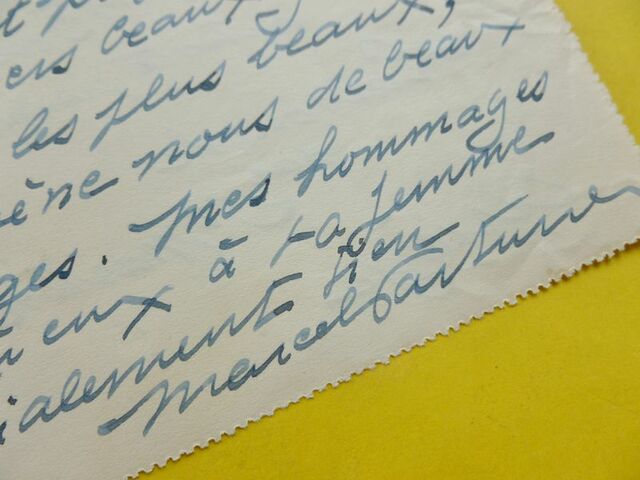 ers beaux
les plus beaux,
ène nous de beaux
ges. Mes hommages
eux à ta femme
ialement tien
Marcel Sarturne